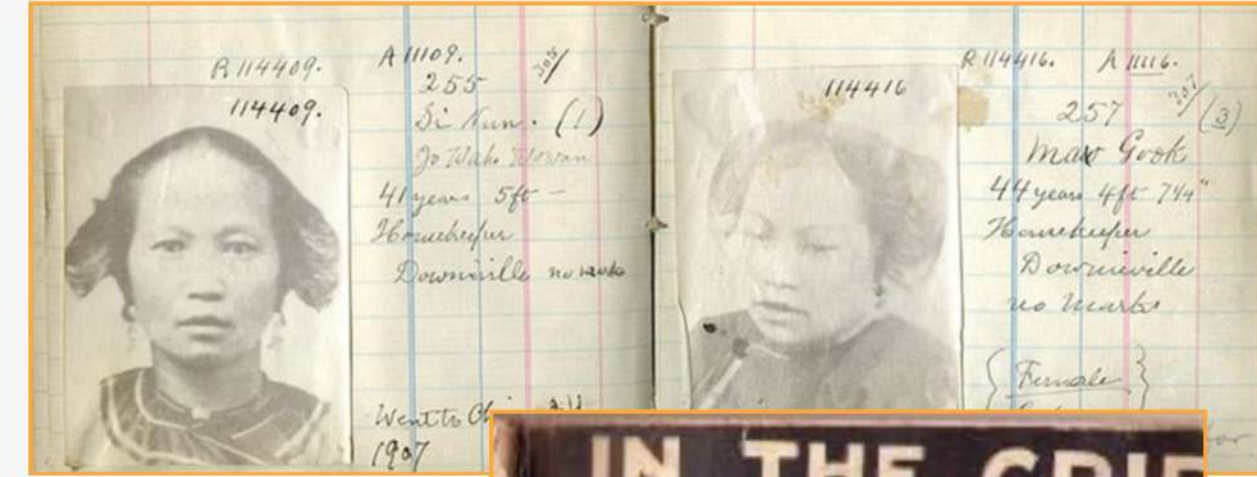 R 114409.
114409.
A 11109.
255
305/
Si Nun. (1)
Jo Wah's Woman
41 years 5ft –
Housekeeper
Downieville no marks
Went to
1907
R 114416. A 11116.
114416
257 307/ (3)
Maw Gook
44 years 4ft 7 1/4"
Housekeeper
Downieville
no marks
{Female}
IN THE GRIP